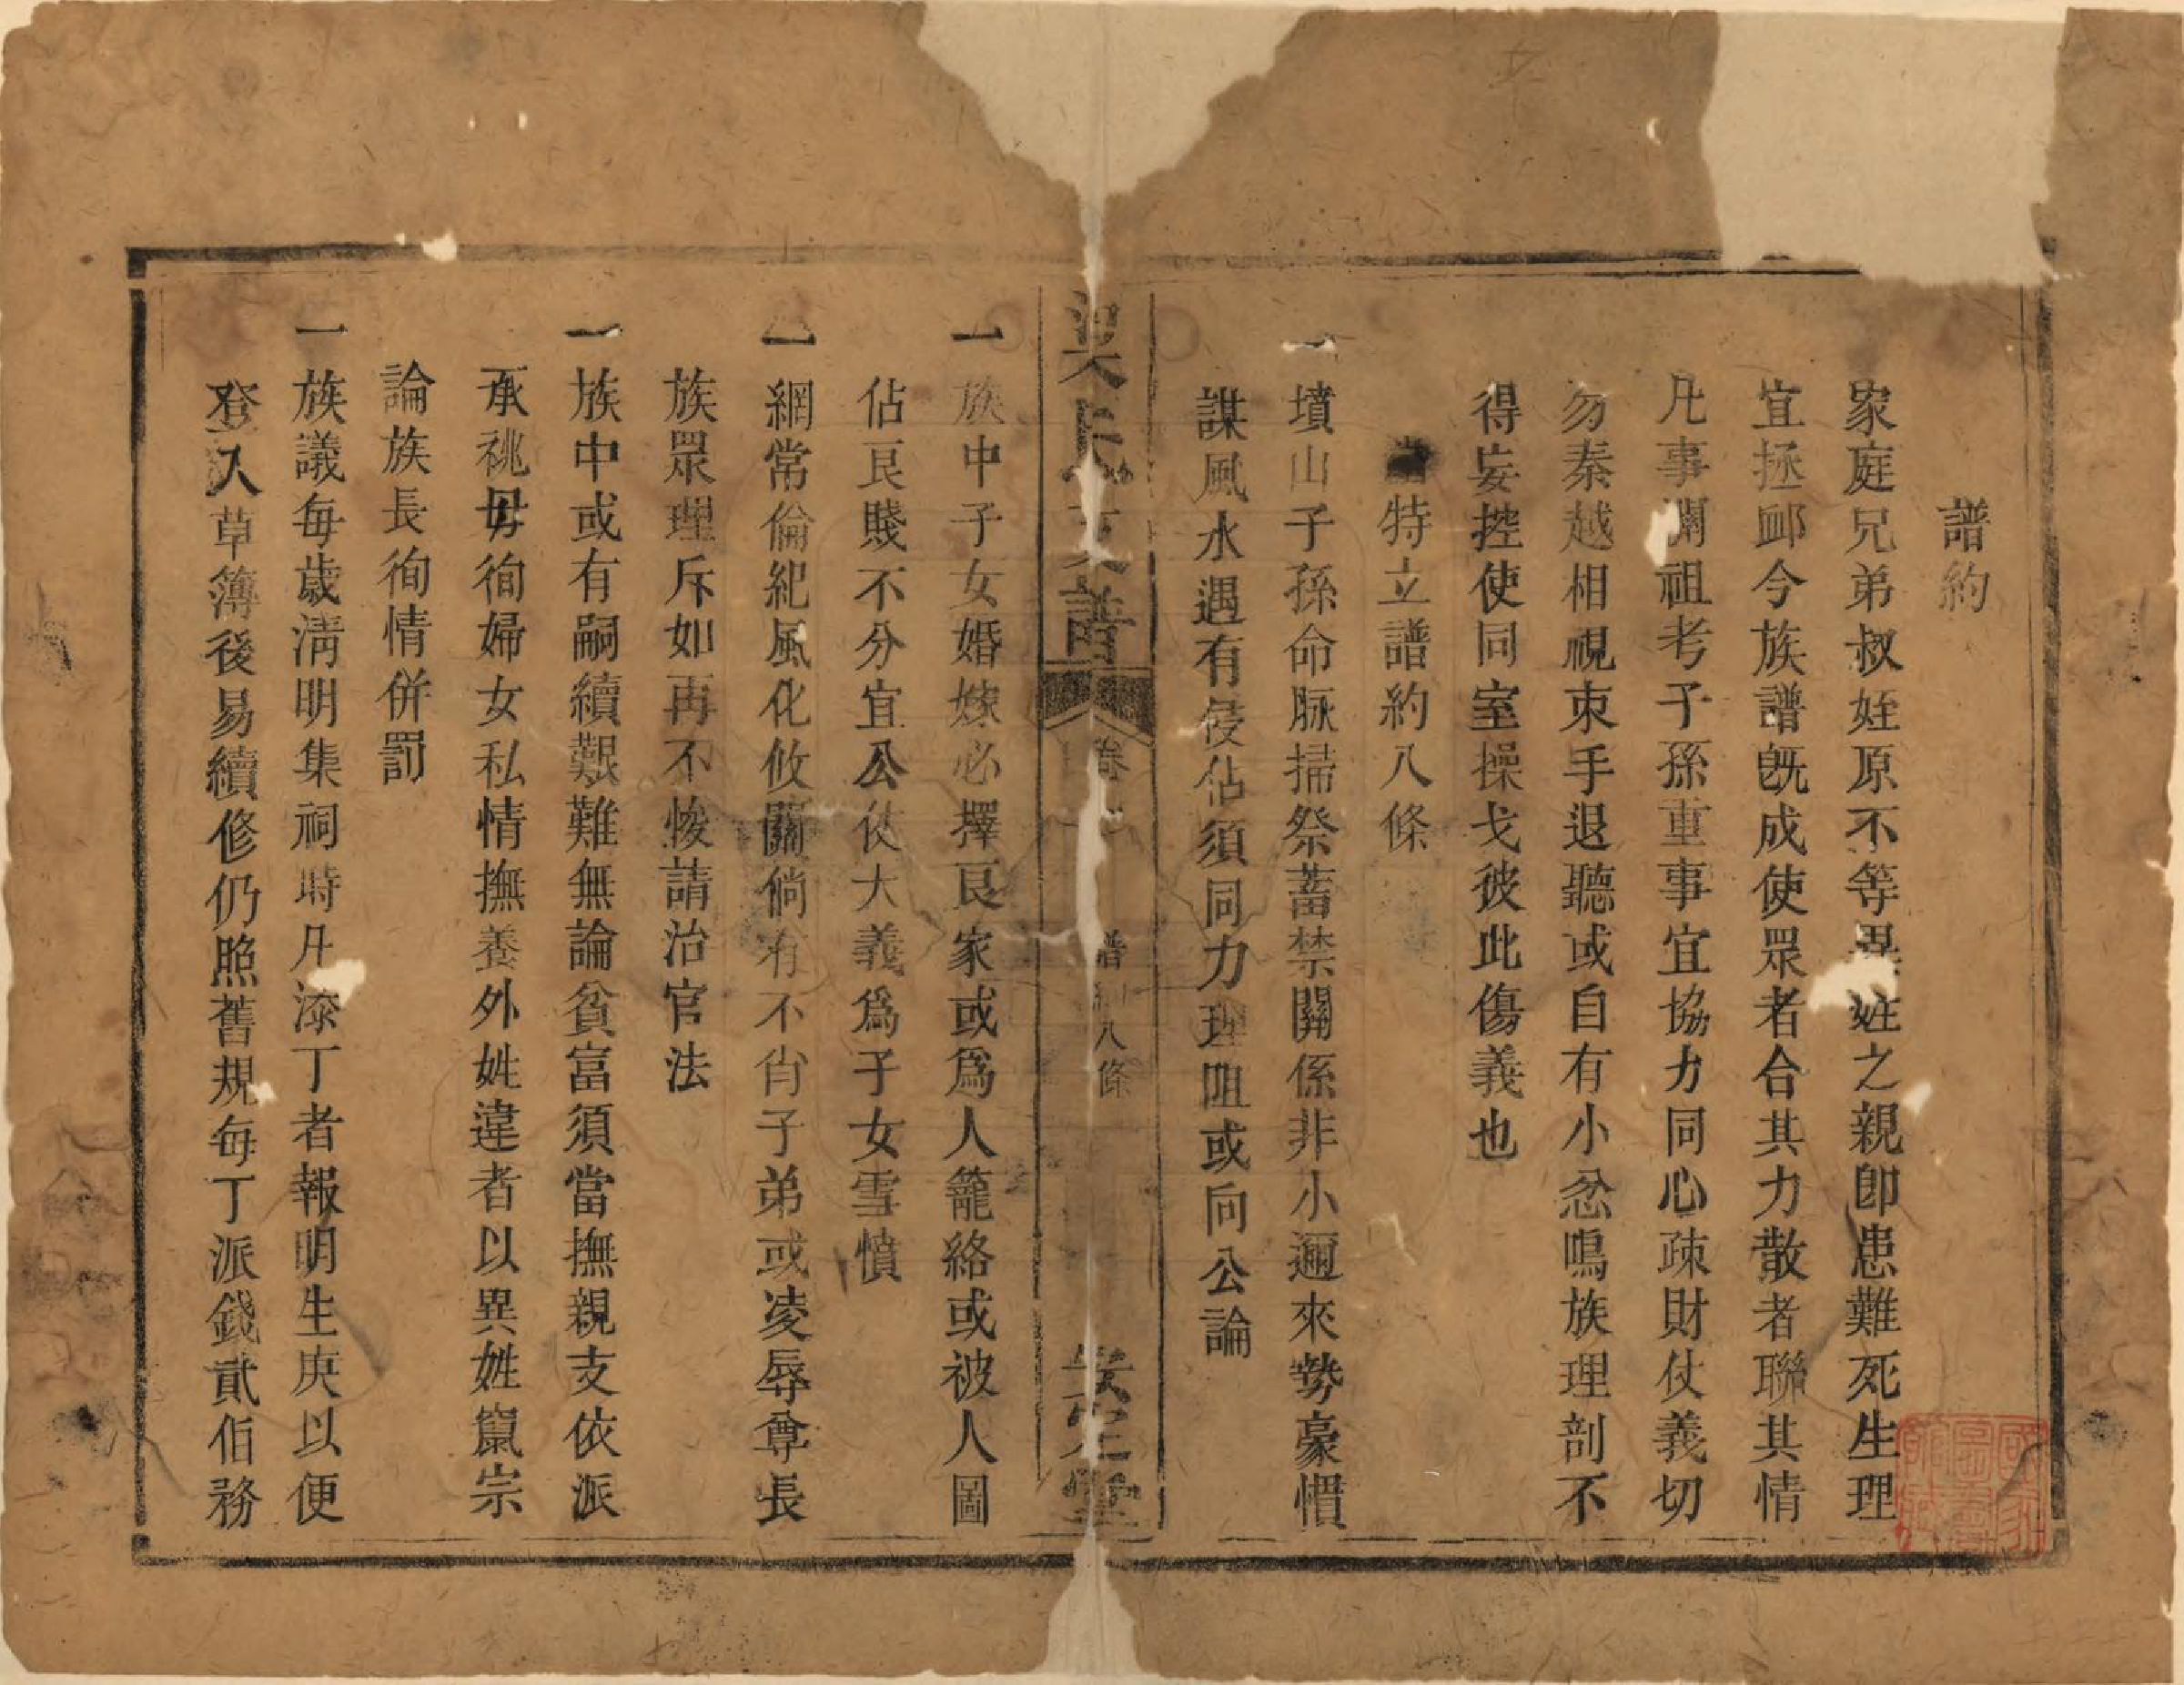 譜約
家庭兄弟叔姪原不等異姓之親卽患難死生理
宜拯卹今族譜旣成使眾者合其力散者聯其情
凡事關祖考子孫重事宜協力同心疎財仗義切
勿秦越相視束手退聽或自有小忿鳴族理剖不
得妄控使同室操戈彼此傷義也
特立譜約八條
一墳山子孫命脉掃祭蓄禁關係非小邇來勢豪慣
謀風水遇有侵佔須同力理阻或向公論
梁氏支譜 卷 譜約八條 安定堂
一族中子女婚嫁必擇良家或爲人籠絡或被人圖
佔良賤不分宜公仗大義爲子女雪憤
一綱常倫紀風化攸關倘有不肖子弟或凌辱尊長
族眾理斥如再不悛請治官法
一族中或有嗣續艱難無論貧富須當撫親支依派
承祧毋徇婦女私情撫養外姓違者以異姓竄宗
論族長徇情併罰
一族議每歲淸明集祠時凡添丁者報明生庚以便
登入草簿後易續修仍照舊規每丁派錢貳佰務
國家圖書館藏